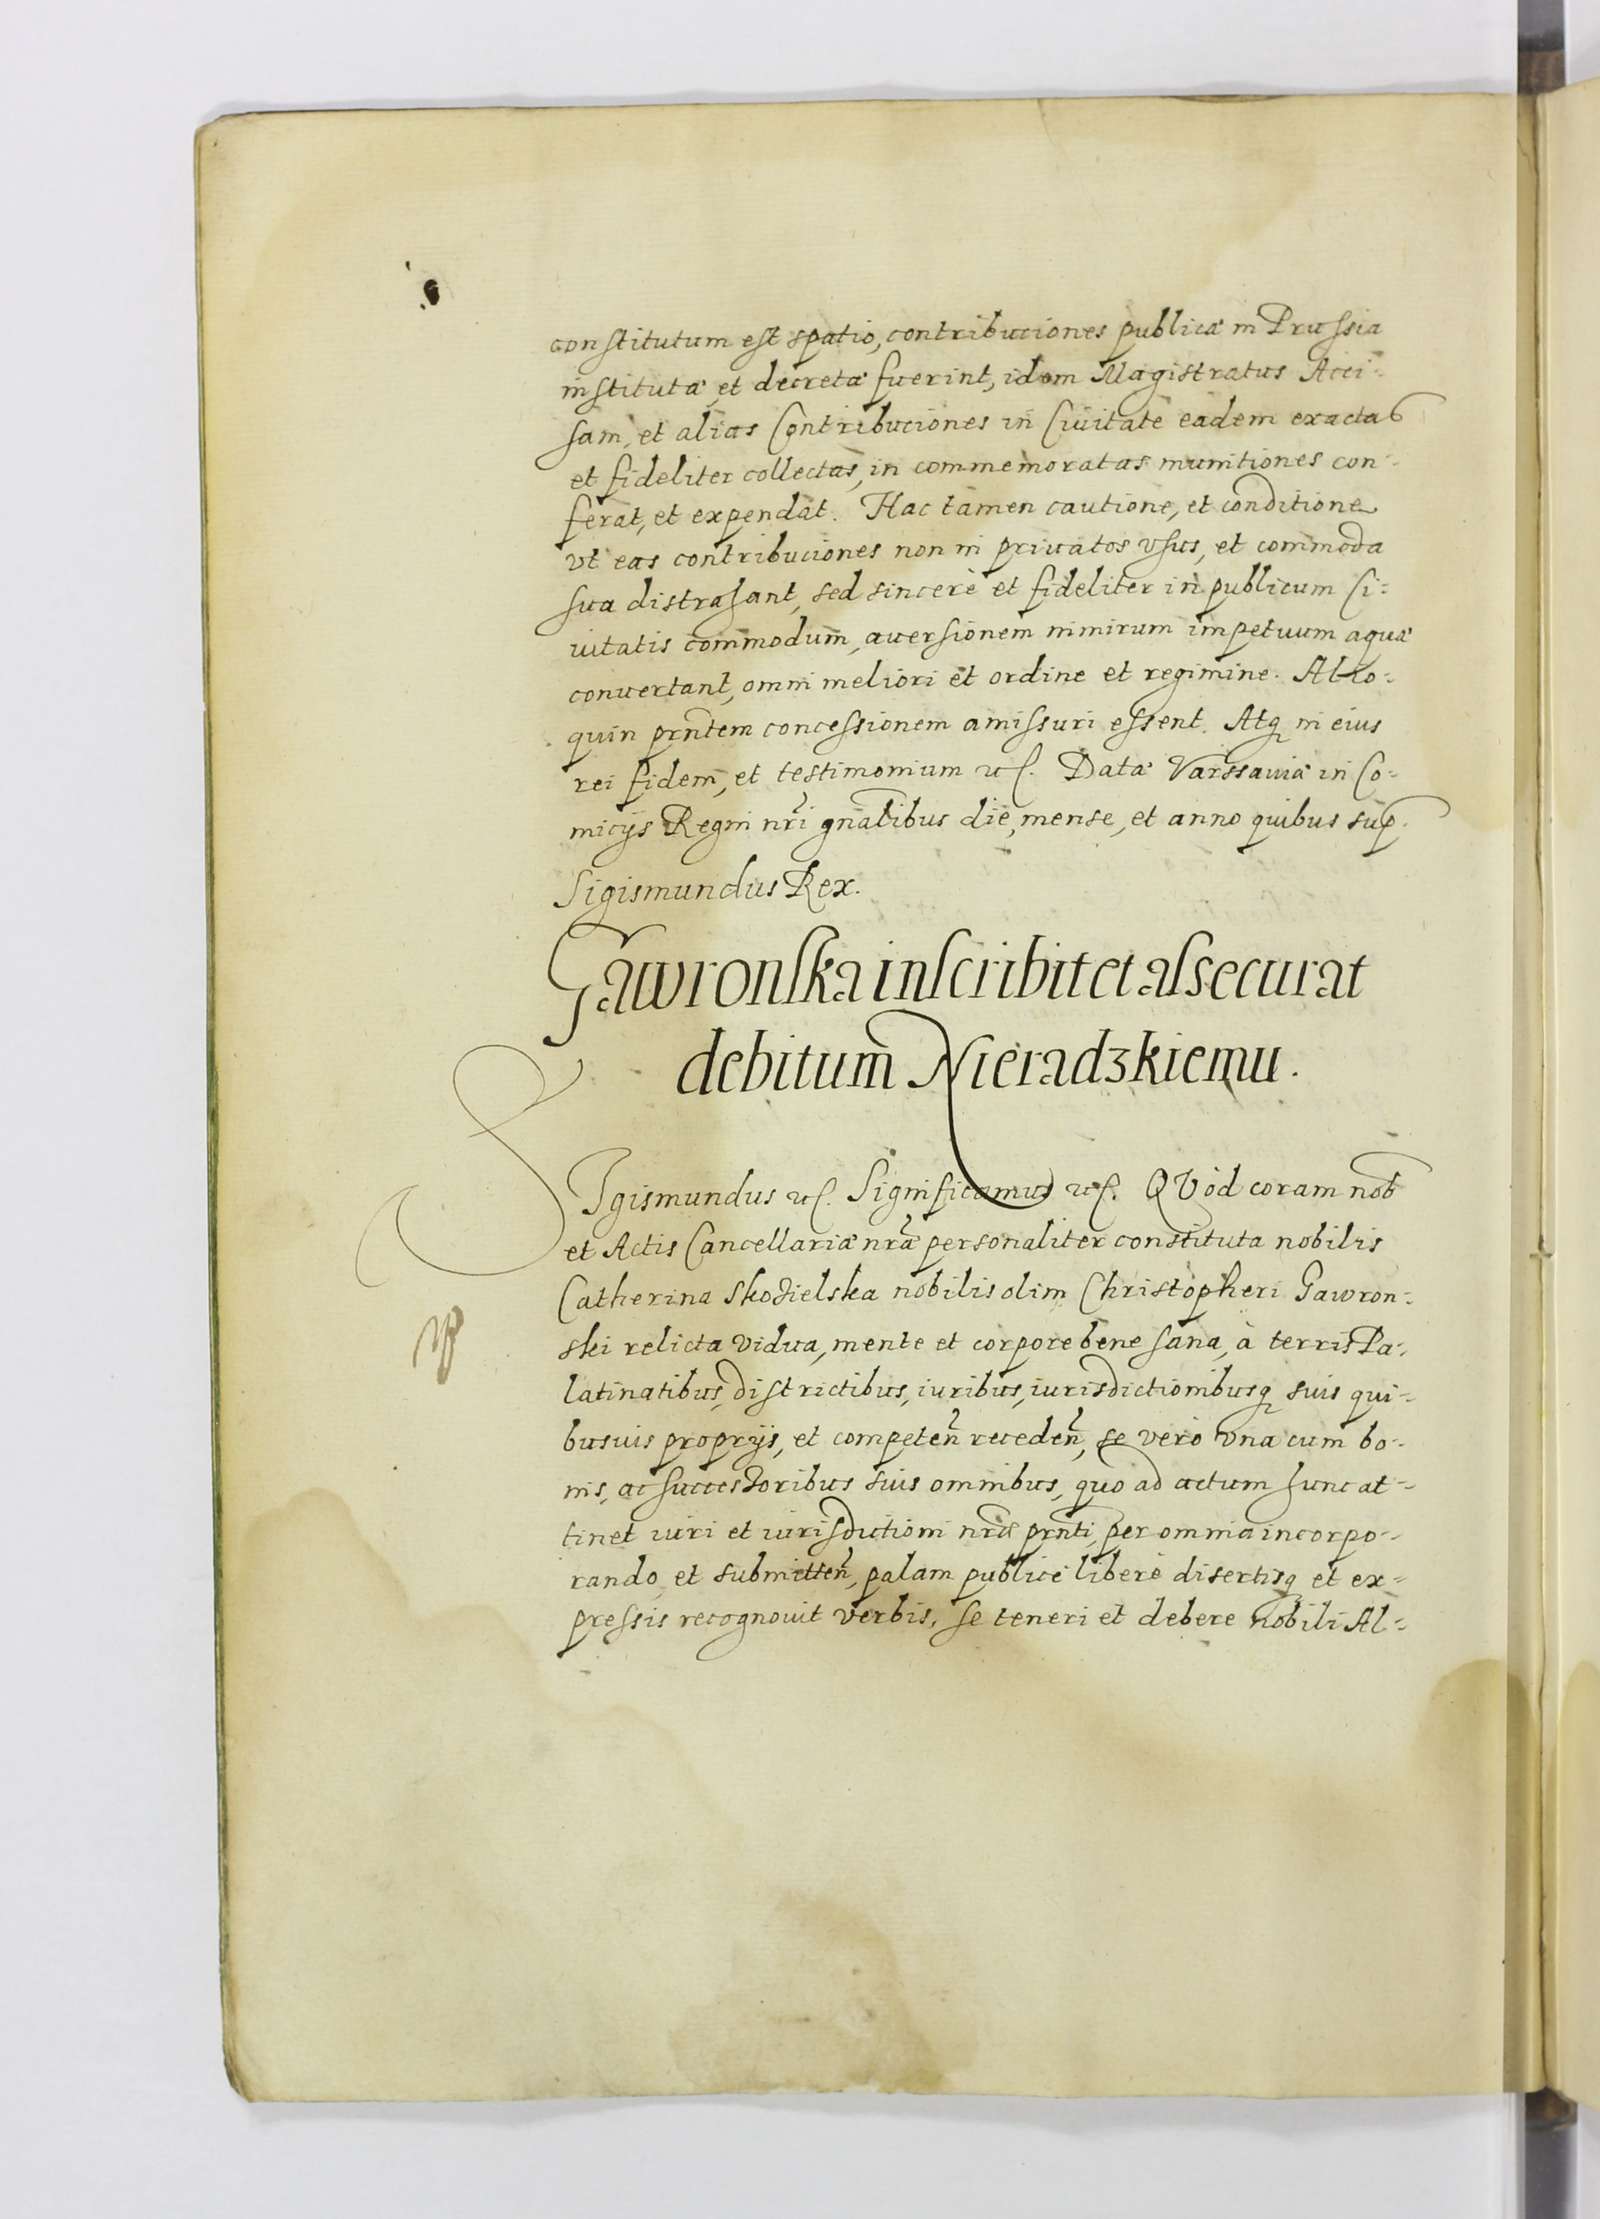 constitutum est spatio, contribuciones publicæ in Prussia
institutæ et decretæ fuerint, idem Magistratus Acci-
sam, et alias Contribuciones in Ciuitate eadem exactas
et fideliter collectas, in commemoratas munitiones con-
ferat, et expendat. Hac tamen cautione, et conditione
vt eas contribuciones non in priuatos vsus, et commoda
sua distrahant, sed sincerè et fideliter in publicum Ci-
uitatis commodum, auersionem nimirum impetuum aquæ
conuertant, omni meliori et ordine et regimine. Alio-
quin prñtem concessionem amissuri essent. Atq in eius
rei fidem, et testimonium etc. Datæ Varssauiæ in Co-
micijs Regni nri gnalibus die, mense, et anno quibus sup.
Sigismundus Rex.
Gawronska inscribit et assecurat
debitum Nieradzkiemu.
SIgismundus etc. Significamus etc. QVod coram nob
et Actis Cancellariæ nræ personaliter constituta nobilis
Catherina Skozielska nobilis olim Christopheri Gawron-
ski relicta vidua, mente et corpore bene sana, à terris Pa-
latinatibus, districtibus, iuribus, iurisdictionibusq suis qui-
busuis proprijs, et competeñ recedeñ, se vero vna cum bo-
nis, ac successoribus suis omnibus, quo ad actum hunc at-
tinet iuri et iurisdictioni nræ prñti, per omnia incorpo-
rando, et submitteñ, palam publicè liberè disertisq et ex-
pressis recognouit verbis, se teneri et debere nobili Al-